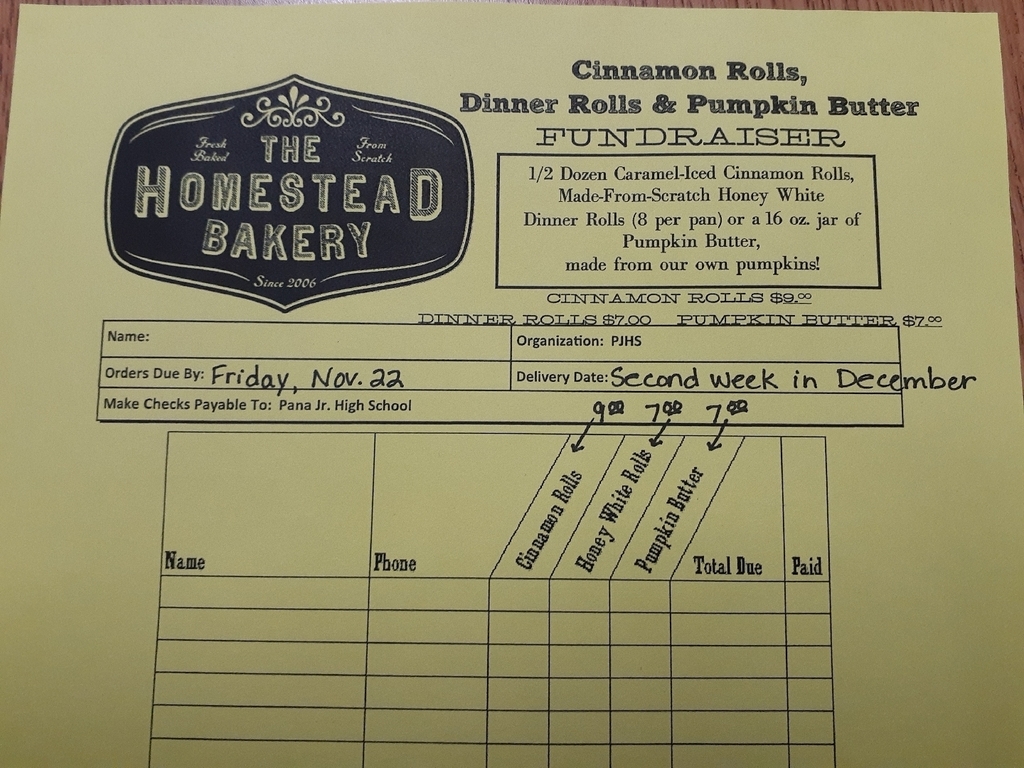 Cinnamon Rolls,
Dinner Rolls & Pumpkin Butter
FUNDRAISER
Fresh Baked
From Scratch
THE
HOMESTEAD
BAKERY
Since 2006
1/2 Dozen Caramel-Iced Cinnamon Rolls,
Made-From-Scratch Honey White
Dinner Rolls (8 per pan) or a 16 oz. jar of
Pumpkin Butter,
made from our own pumpkins!
CINNAMON ROLLS $9.00
DINNER ROLLS $7.00 PUMPKIN BUTTER $7.00
Name: Organization: PJHS
Orders Due By: Friday, Nov. 22 Delivery Date: Second week in December
Make Checks Payable To: Pana Jr. High School
9.00 7.00 7.00
Name Phone Cinnamon Rolls Honey White Rolls Pumpkin Butter Total Due Paid